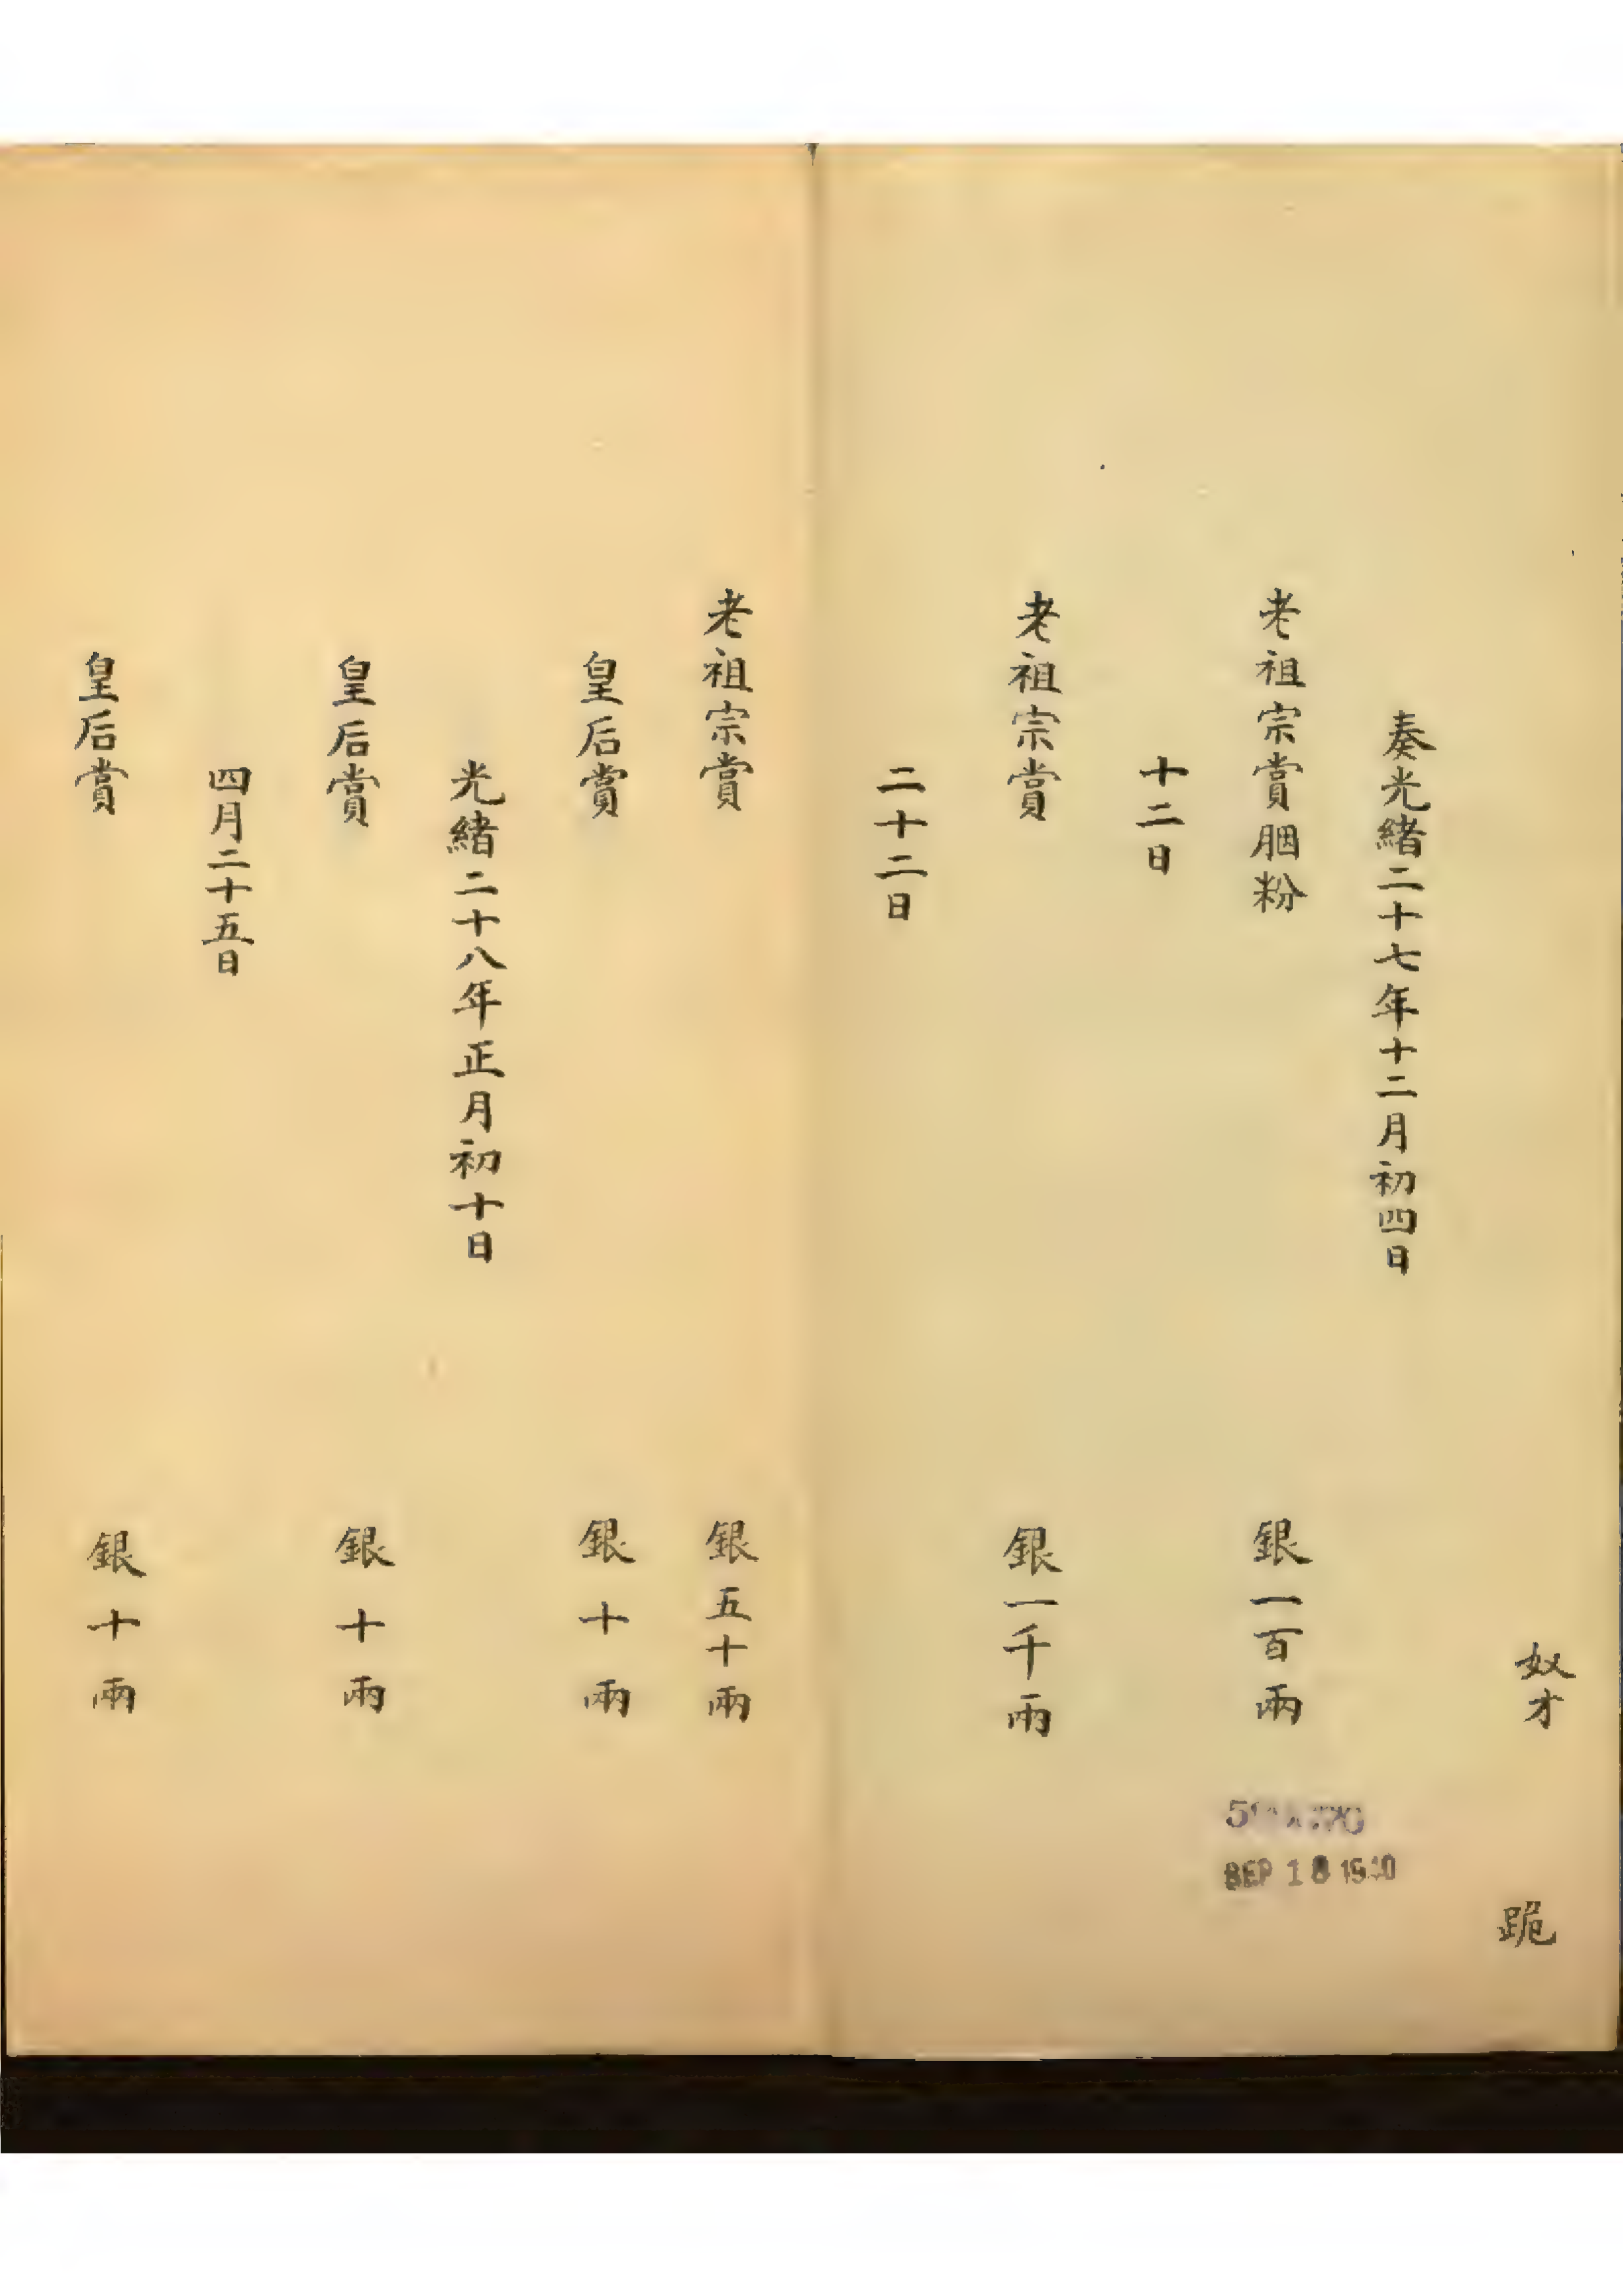 奴才　跪
奏光緒二十七年十二月初四日
老祖宗賞胭粉　銀一百兩
十二日
老祖宗賞　銀一千兩
二十二日
老祖宗賞　銀五十兩
皇后賞　銀十兩
光緒二十八年正月初十日
皇后賞　銀十兩
四月二十五日
皇后賞　銀十兩
SEP 18